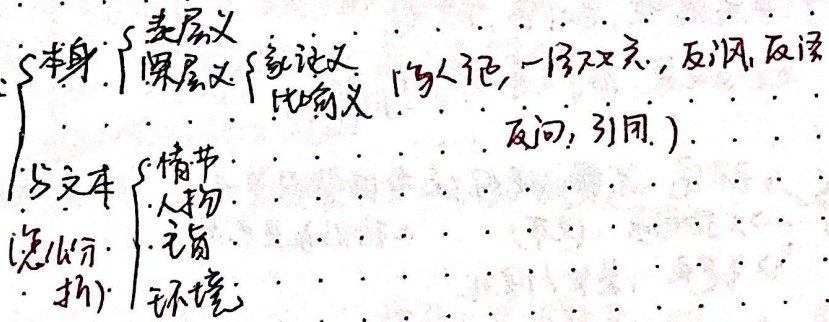 本身 表层义
深层义 象征义
比喻义
(拟人、一语双关,反讽,反语
反问,引用.)
与文本 情节
人物
主旨
环境
分
析)